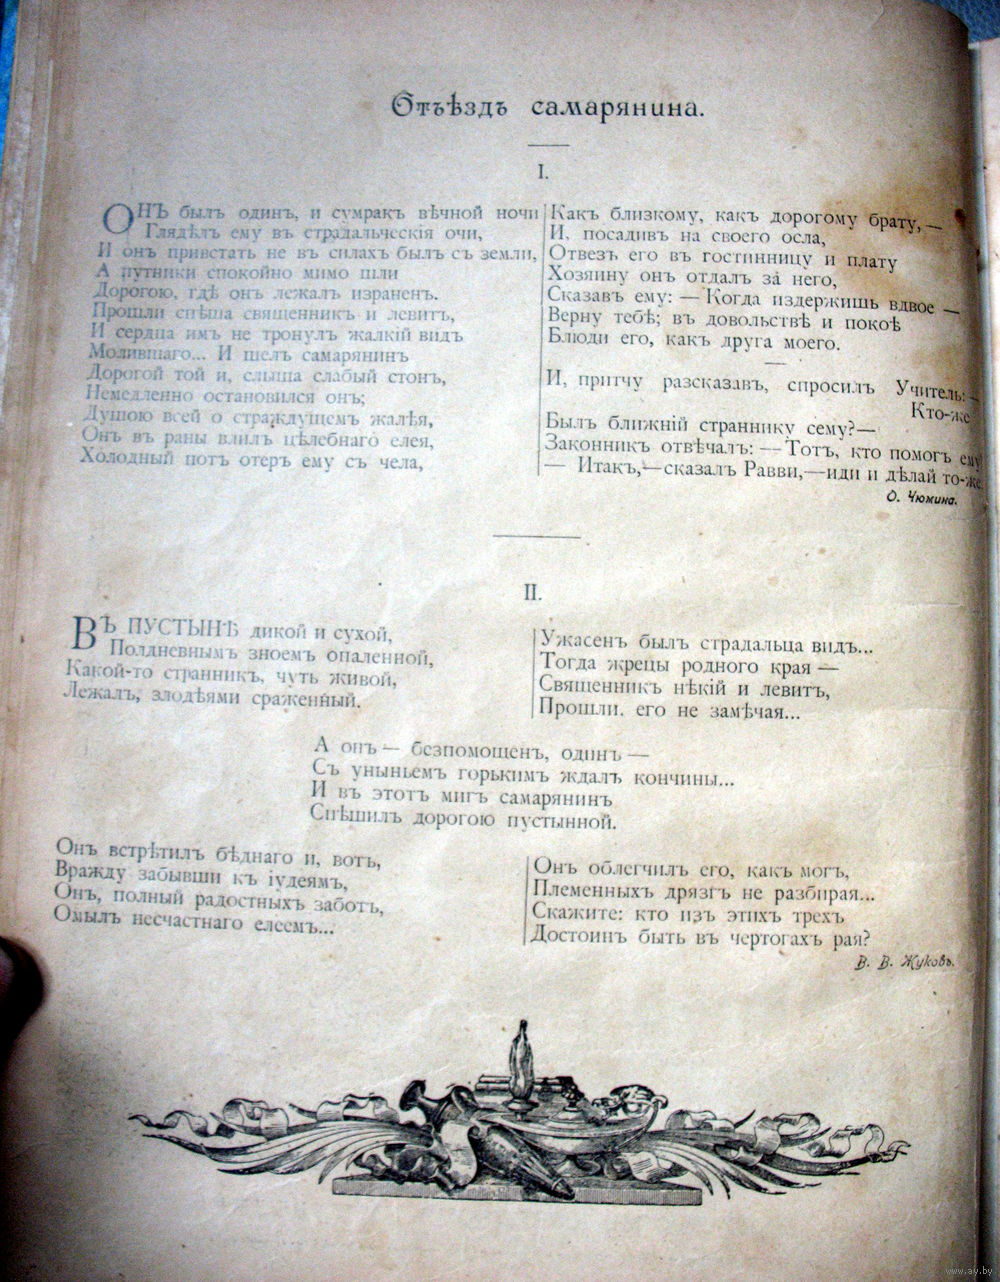 Отъѣздъ самарянина.
I.
ОНЪ былъ одинъ, и сумракъ вѣчной ночи
Глядѣлъ ему въ страдальческія очи,
И онъ привстать не въ силахъ былъ съ земли,
А путники спокойно мимо шли
Дорогою, гдѣ онъ лежалъ израненъ.
Прошли спѣша священникъ и левитъ,
И сердца имъ не тронулъ жалкій видъ
Молившаго... И шелъ самарянинъ
Дорогой той и, слыша слабый стонъ,
Немедленно остановился онъ;
Душою всей о страждущемъ жалѣя,
Онъ въ раны влилъ цѣлебнаго елея,
Холодный потъ отеръ ему съ чела,
Какъ близкому, какъ дорогому брату,—
И, посадивъ на своего осла,
Отвезъ его въ гостинницу и плату
Хозяину онъ отдалъ за него,
Сказавъ ему: — Когда издержишь вдвое —
Верну тебѣ; въ довольствѣ и покоѣ
Блюди его, какъ друга моего.
—
И, притчу разсказавъ, спросилъ Учитель:—
Кто-же
Былъ ближній страннику сему?—
Законникъ отвѣчалъ: —Тотъ, кто помогъ ему!
— Итакъ,—сказалъ Равви,—иди и дѣлай то-же.
О. Чюмина.
II.
ВЪ ПУСТЫНѢ дикой и сухой,
Полдневнымъ зноемъ опаленной,
Какой-то странникъ, чуть живой,
Лежалъ, злодѣями сраженный.
Ужасенъ былъ страдальца видъ...
Тогда жрецы родного края —
Священникъ нѣкій и левитъ,
Прошли. его не замѣчая...
А онъ — безпомощенъ, одинъ —
Съ уныньемъ горькимъ ждалъ кончины...
И въ этотъ мигъ самарянинъ
Спѣшилъ дорогою пустынной.
Онъ встрѣтилъ бѣднаго и, вотъ,
Вражду забывши къ іудеямъ,
Онъ, полный радостныхъ заботъ,
Омылъ несчастнаго елеемъ...
Онъ облегчилъ его, какъ могъ,
Племенныхъ дрязгъ не разбирая...
Скажите: кто изъ этихъ трехъ
Достоинъ быть въ чертогахъ рая?
В. В. Жуковъ.
www.ay.by